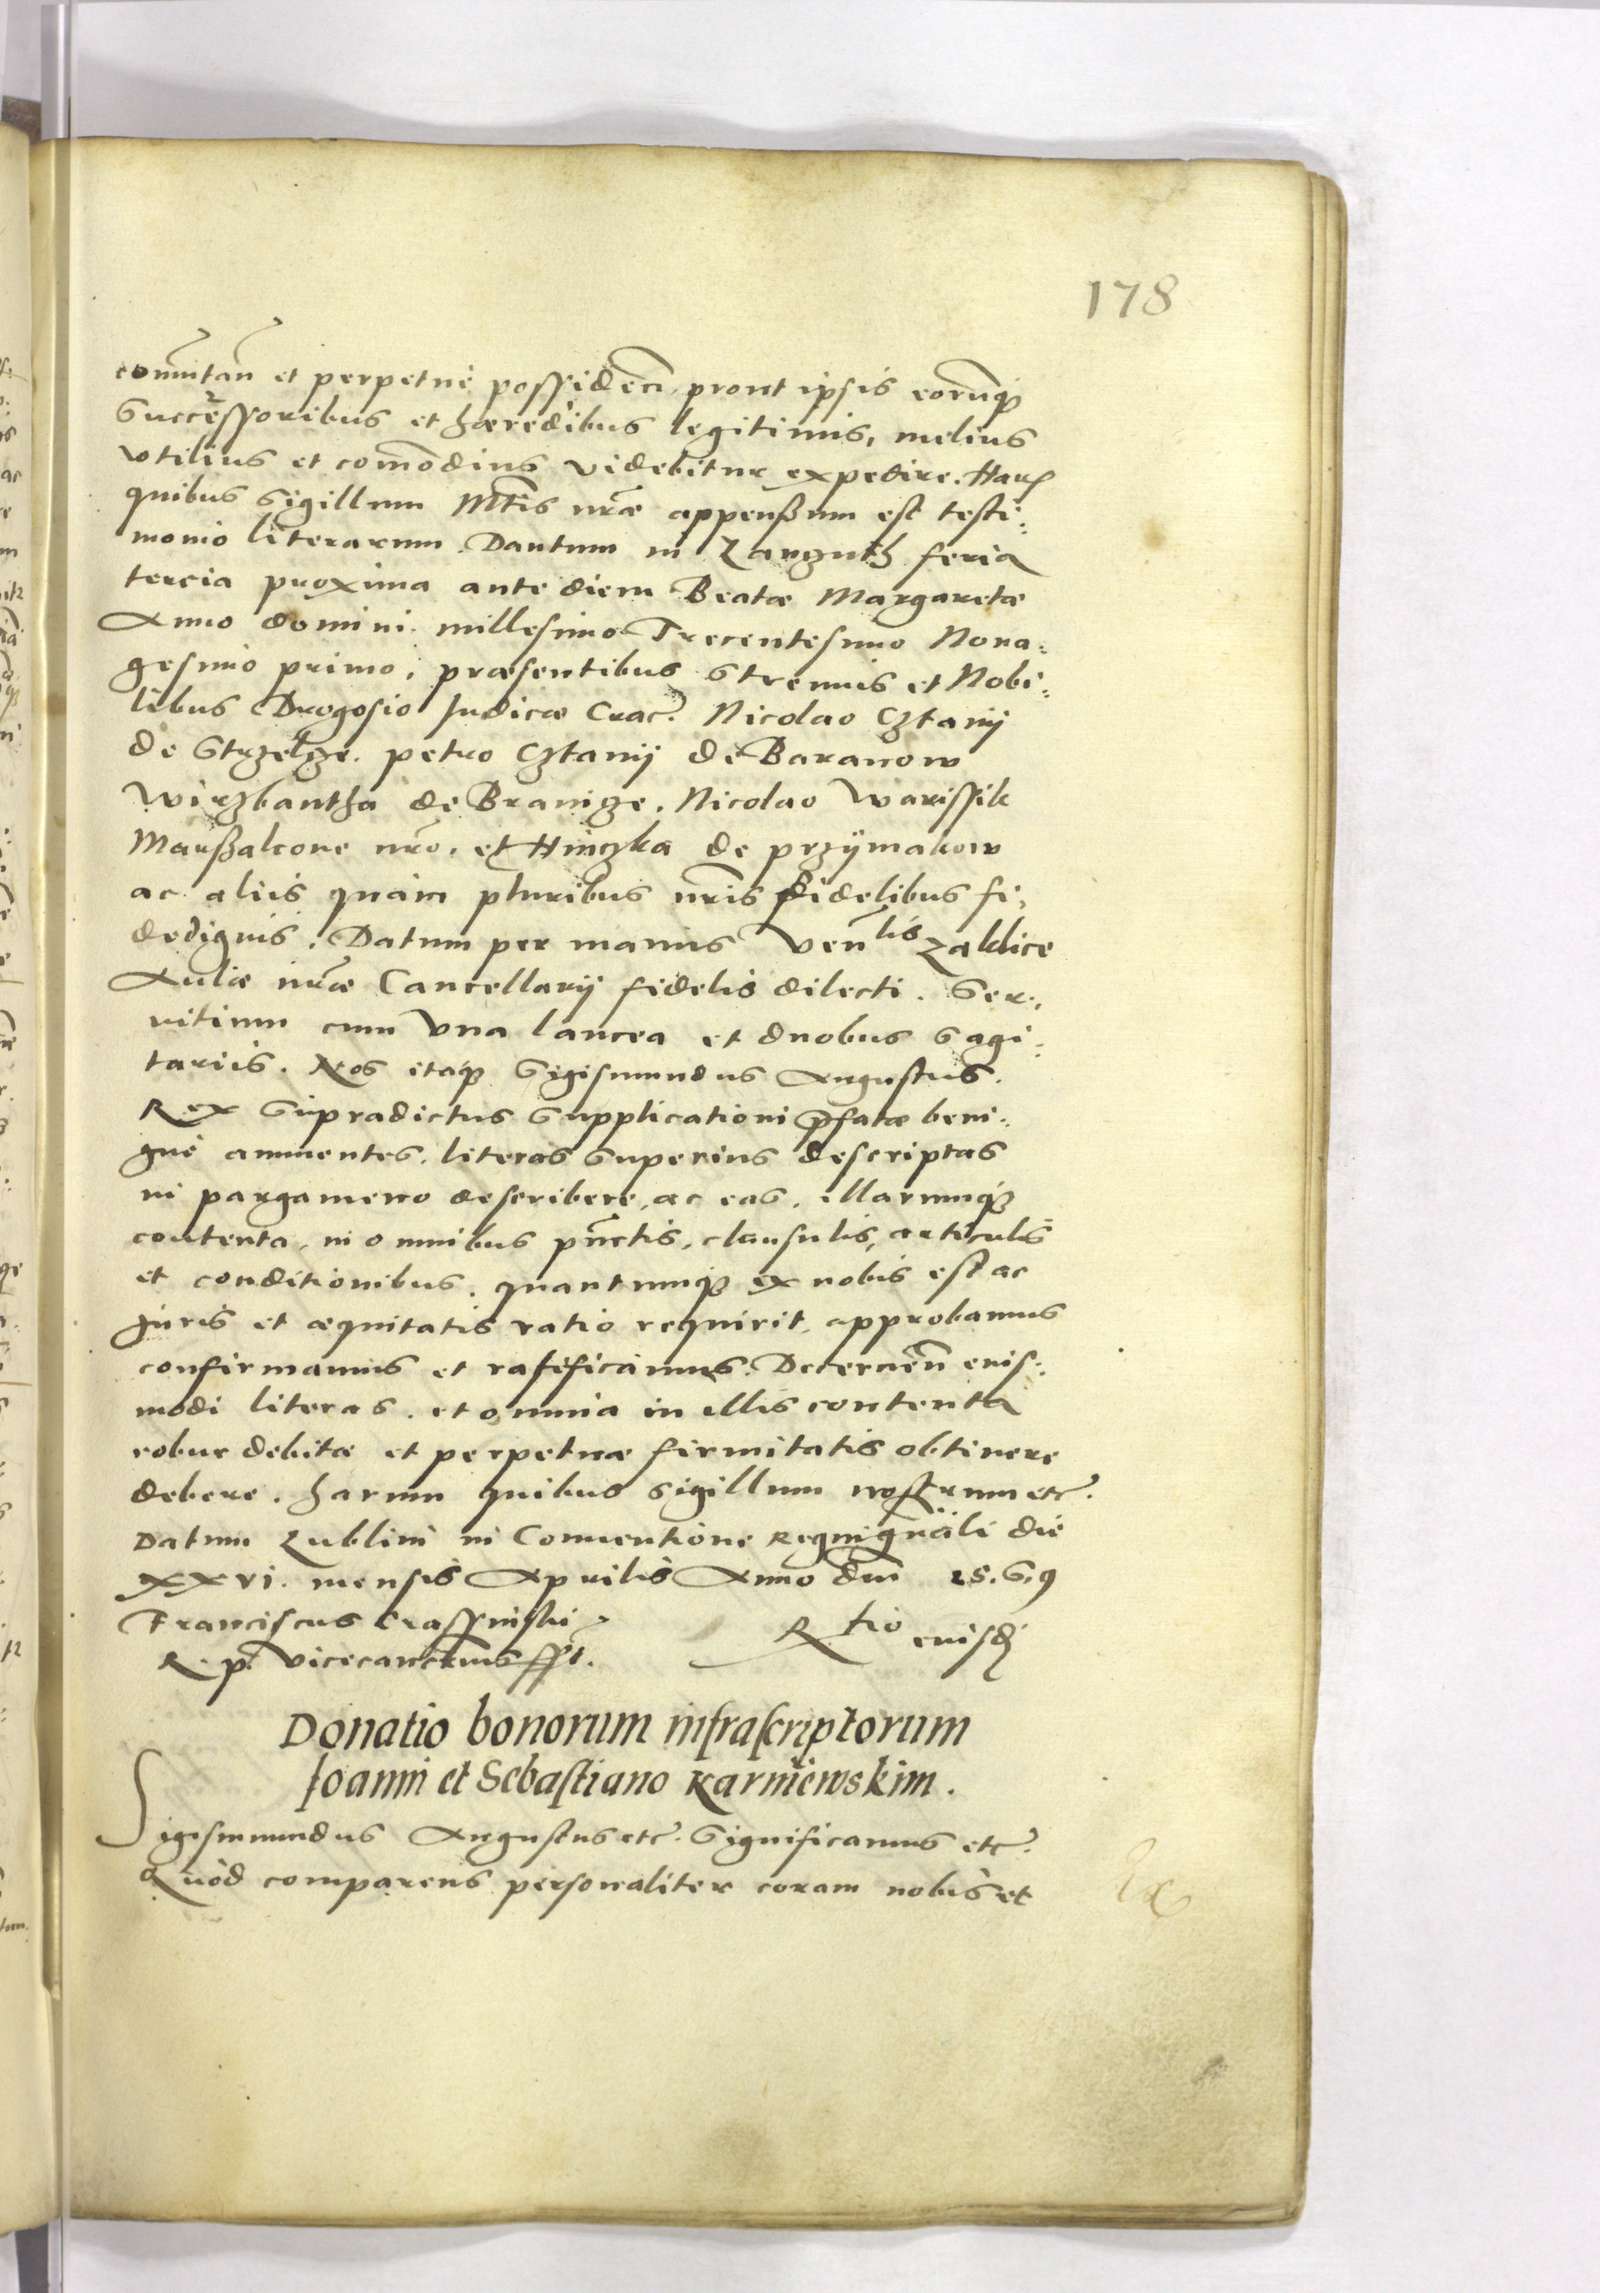 178
com̃utañ et perpetue possideñ prout ipsis eorumq3
Successoribus et hæredibus legitimis, melius
vtilius et com̃odius videbitur expedire. Harũ
quibus sigillum Mt̃is nr̃æ appensum est testi-
monio literarum. Dantum in Langutħ feria
tercia proxima ante diem Beatæ Margaretæ
Anno domini millesimo Trecentesimo Nona-
gesimo primo, præsentibus strenuis et Nobi-
libus Drogosio Judice Crac. Nicolao Cztanij
de Strzelcze. petro Cztanij de Baranow
Wirzbantha de Branicze. Nicolao Warissik
Marsalcone nr̃o, et Hinczka de przijmakow
ac aliis quàm pluribus nr̃is fidelibus fi-
dedignis. Datum per manus Ven̄lis Zaklice
Aulæ nr̃æ Cancellarij fidelis dilecti. Ser-
uitium cum Vna lancea et duobus sagi-
tariis. Nos itaq3 Sigismundus Augustus
Rex Supradictus Supplicationi p̃fatæ beni-
gne annuentes, literas superius descriptas
in pargameno describere, ac eas, illarumq3
contenta, in omnibus punctis, clausulis, articulis
et conditionibus, quantumq3 ex nobis est ac
juris et æquitatis ratio requirit, approbamus
confirmamus et ratificamus. Decerneñ euis-
modi literas, et omnia in illis contenta
robur debitæ et perpetuæ firmitatis obtinere
debere. harum quibus sigillum nostrum etc.
Datum Lublini in Conuentione Regni gñali die
XXVI. mensis Aprilis Anno dñi 15.6.9
Franciscus Crassinski
R. p. Vicecancrius sst.
R.tio euisd̃
Donatio bonorum infrascriptorum
Joanni et Sebastiano Karniewskim.
Sigismundus Augustus etc. Significamus etc.
Quod comparens personaliter coram nobis et
Ex